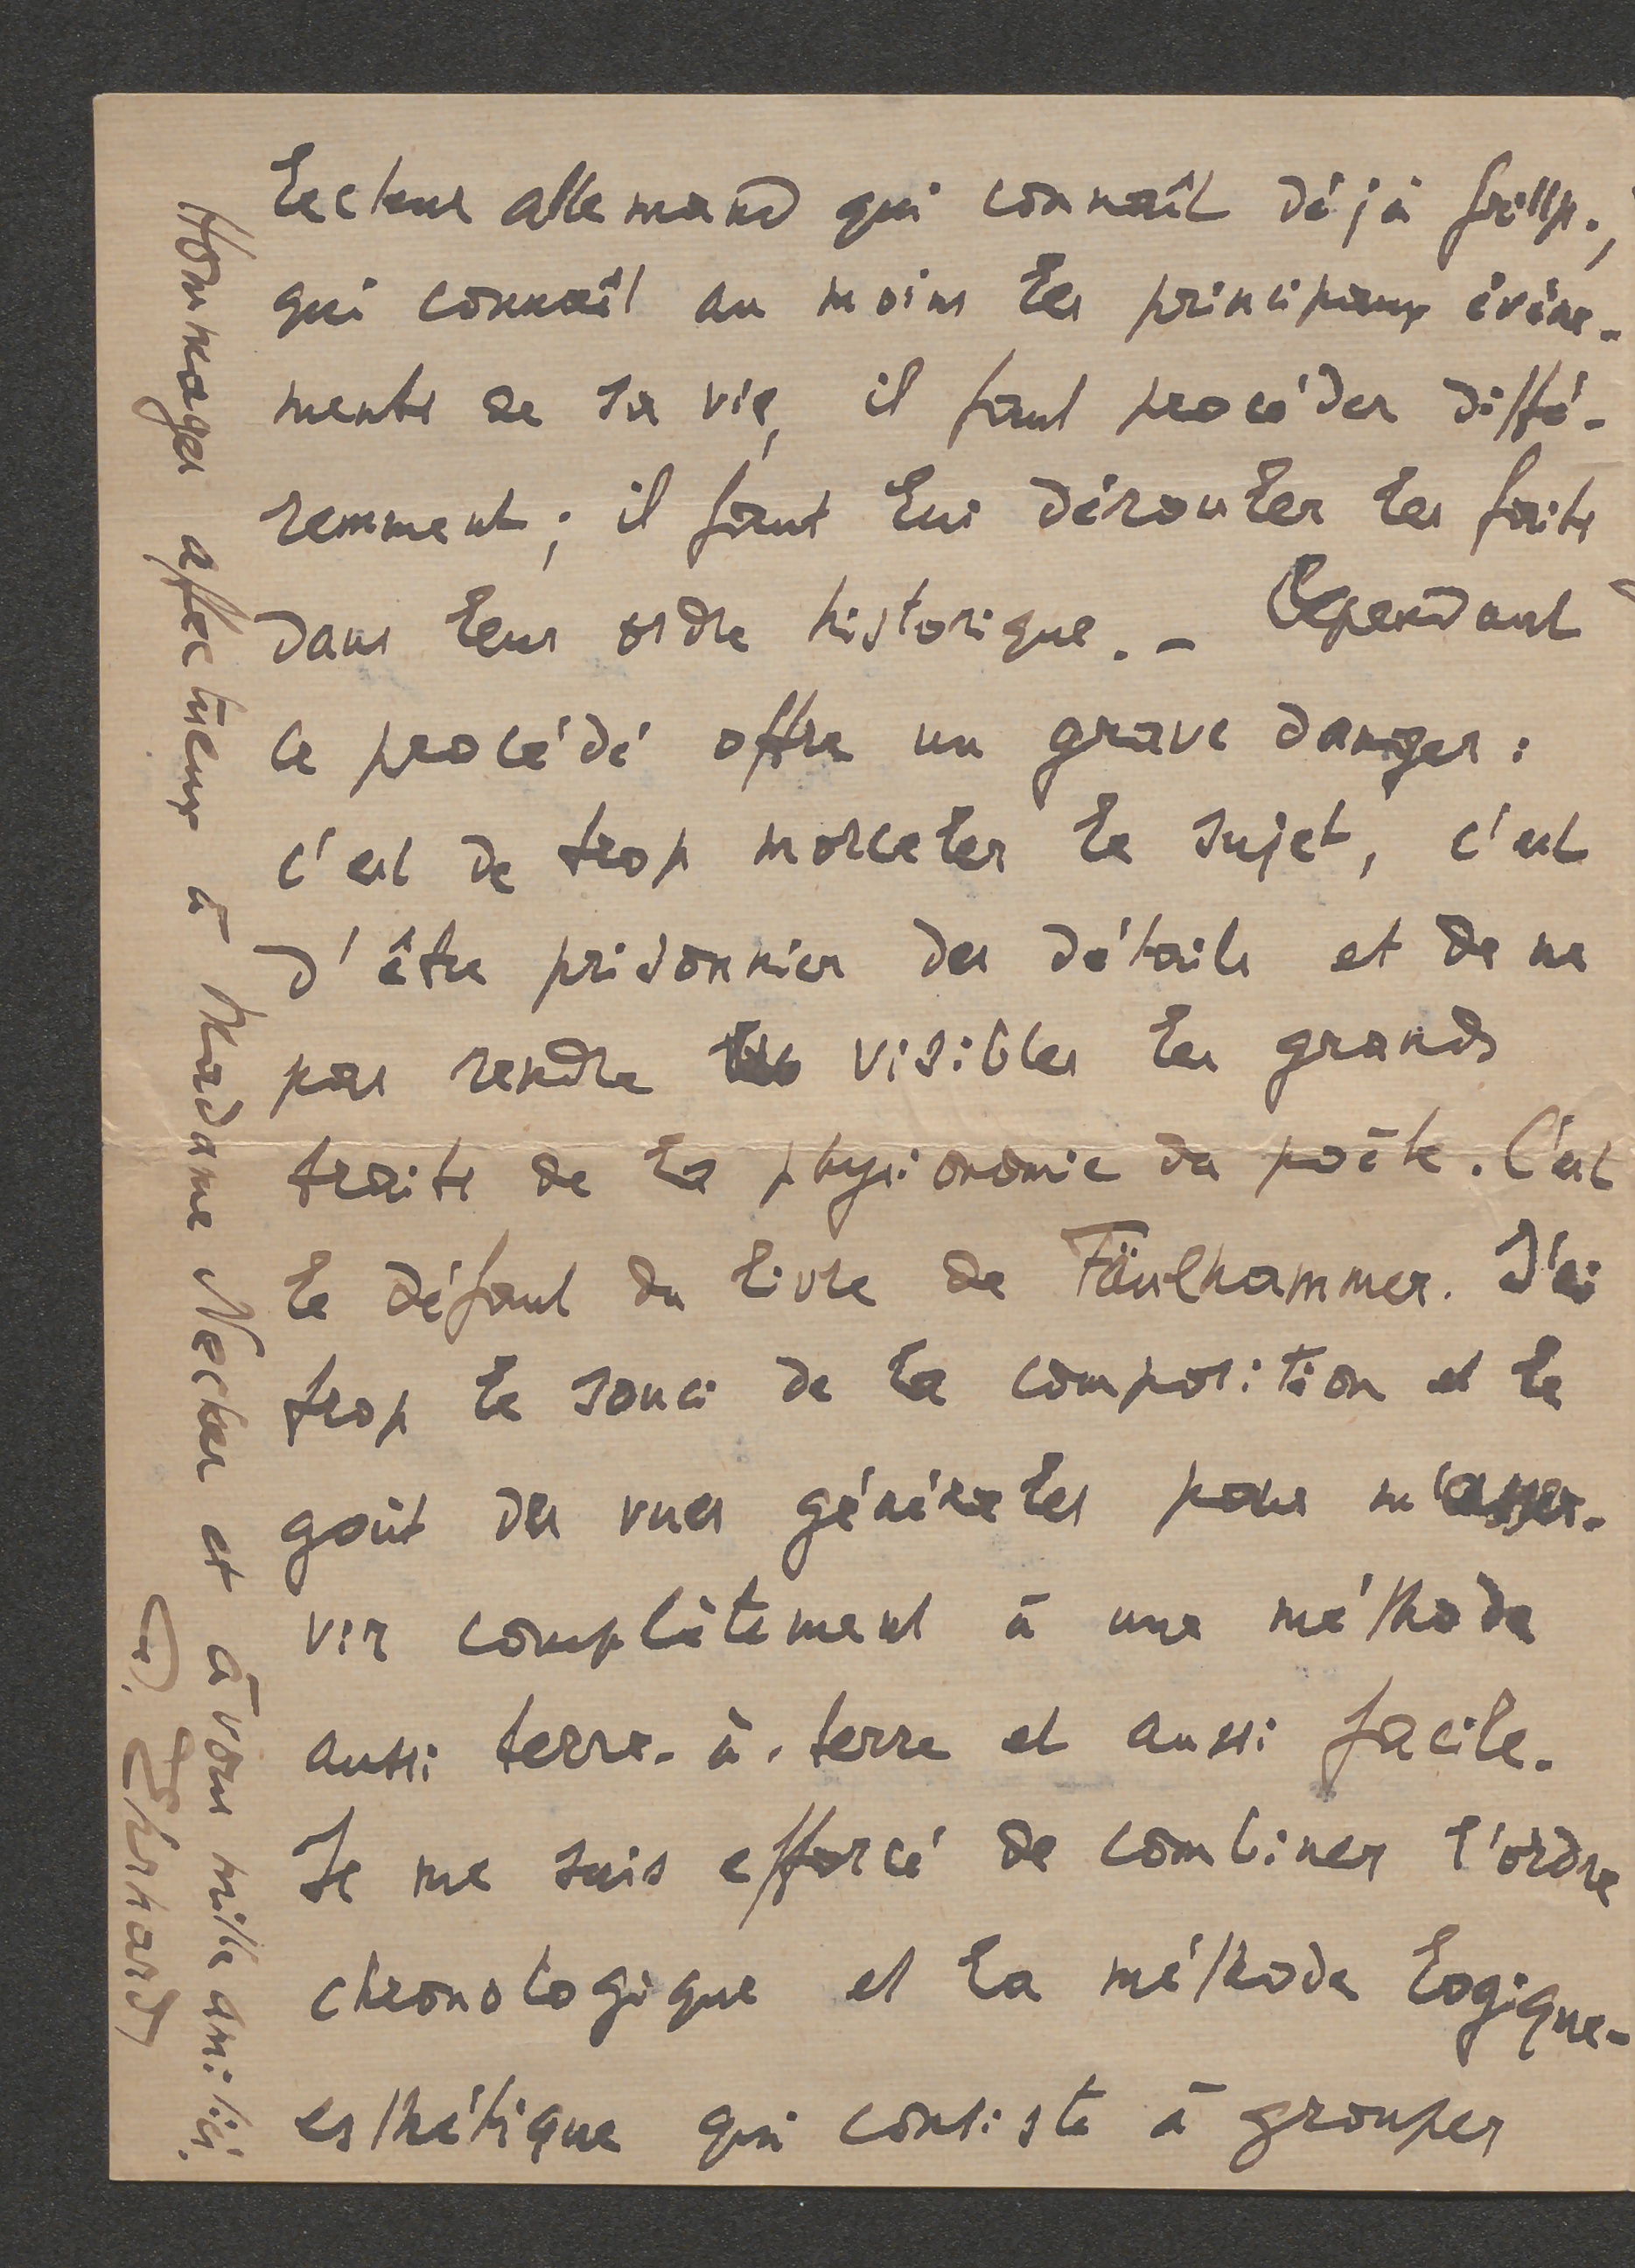 lecteur allemand qui connaît déjà Grillp.,
qui connaît au moins les principaux évène-
ments de sa vie, il faut procéder diffé-
remment ; il faut lui dérouler les faits
dans leur ordre historique. – Cependant
ce procédé offre un grave danger :
c'est de trop morceler le sujet, c'est
d'être prisonnier des détails et de ne
pas rendre visibles les grands
traits de la physionomie du poète. C'est
le défaut du livre de Fäulhammer. J'ai
trop le souci de la composition et le
goût des vues générales pour m'asser-
vir complètement à une méthode
aussi terre-à-terre et aussi facile.
Je me suis efforcé de combiner l'ordre
chronologique et la méthode logique-
esthétique qui consiste à grouper
Hommages affectueux à Madame Necker et à vous mille amitiés.
A. Ehrhard